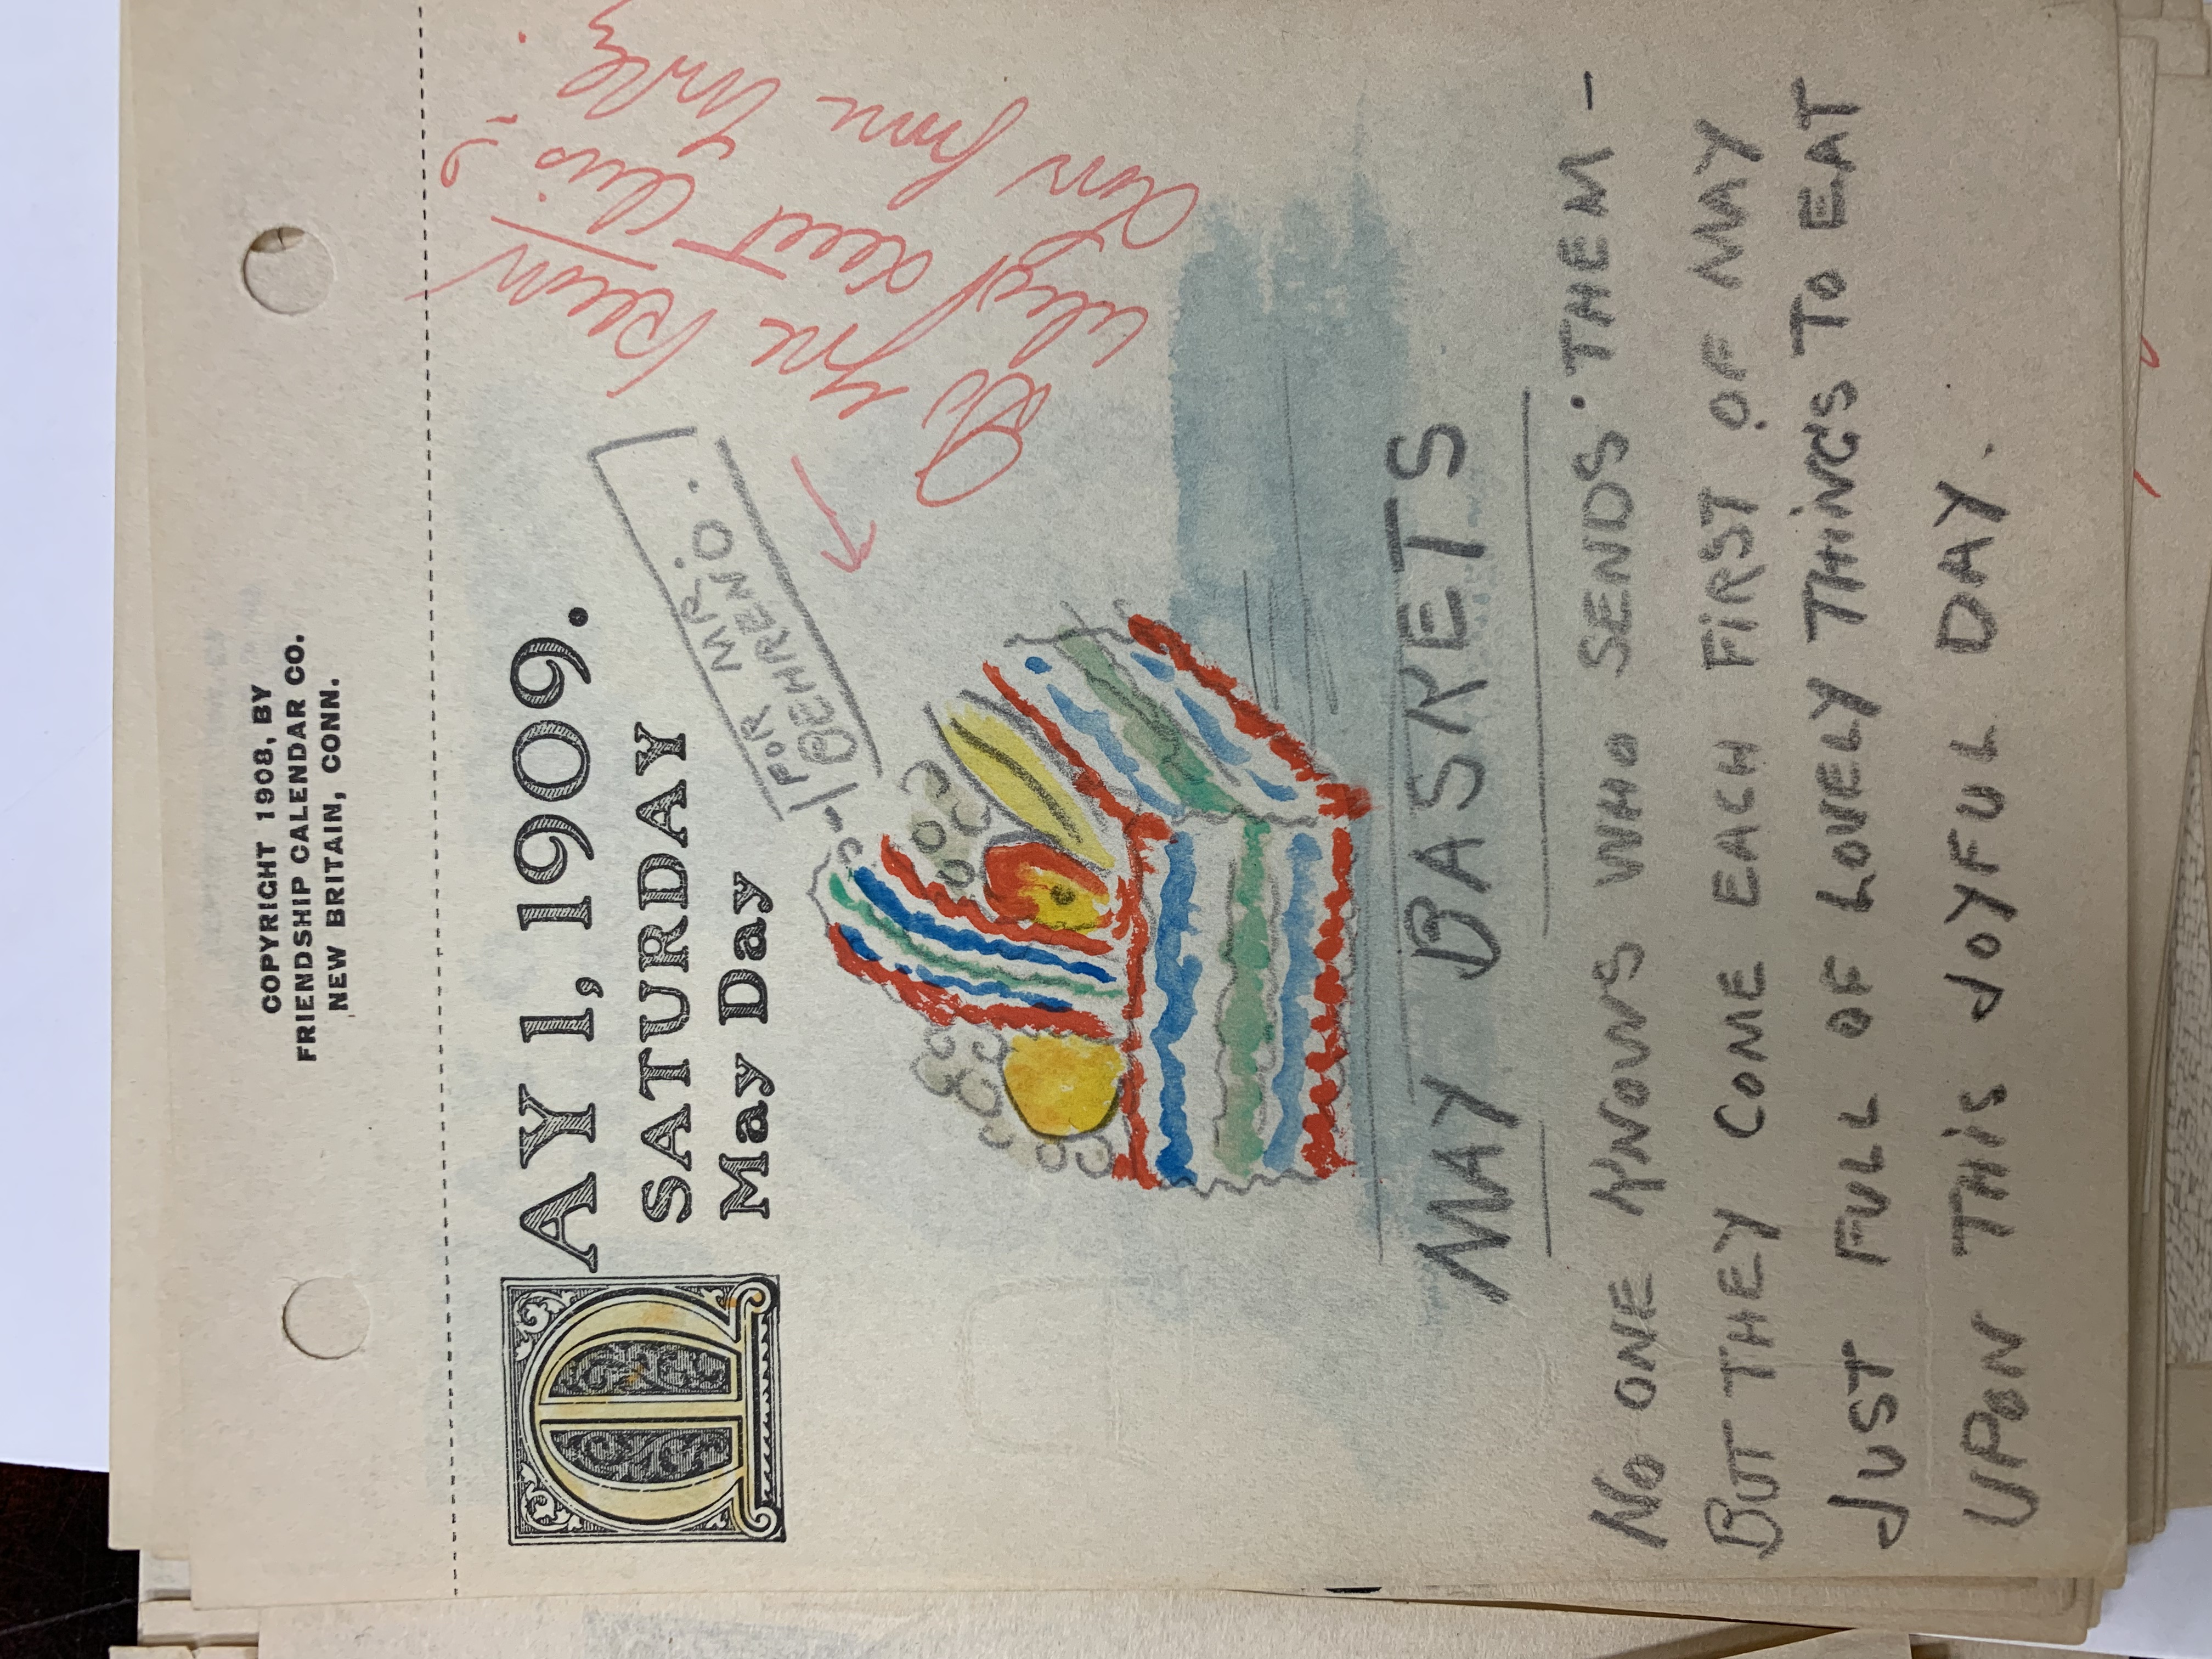 COPYRIGHT 1908, BY
FRIENDSHIP CALENDAR CO.
NEW BRITAIN, CONN.
MAY 1, 1909.
SATURDAY
May Day
FOR MR.
BEHREND.
Do you know
who sent this?
MAY BASKETS
NO ONE KNOWS WHO SENDS THEM –
BUT THEY COME EACH FIRST OF MAY
JUST FULL OF LOVELY THINGS TO EAT
UPON THIS JOYFUL DAY.